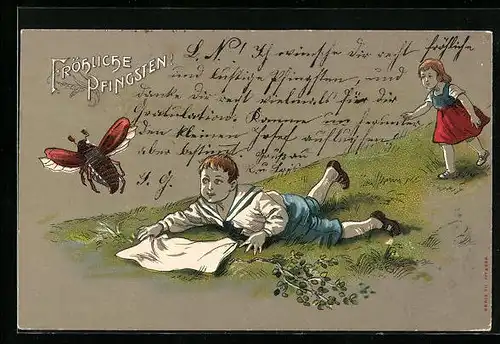 Fröhliche
Pfingsten!
L. N.! Ich wünsche Dir recht fröhliche
und lustige Pfingsten, und
danke dir recht vielmals für die
Gratulation. Komme
den kleinen Josef
aber bestimmt. Gruß an
S. G.